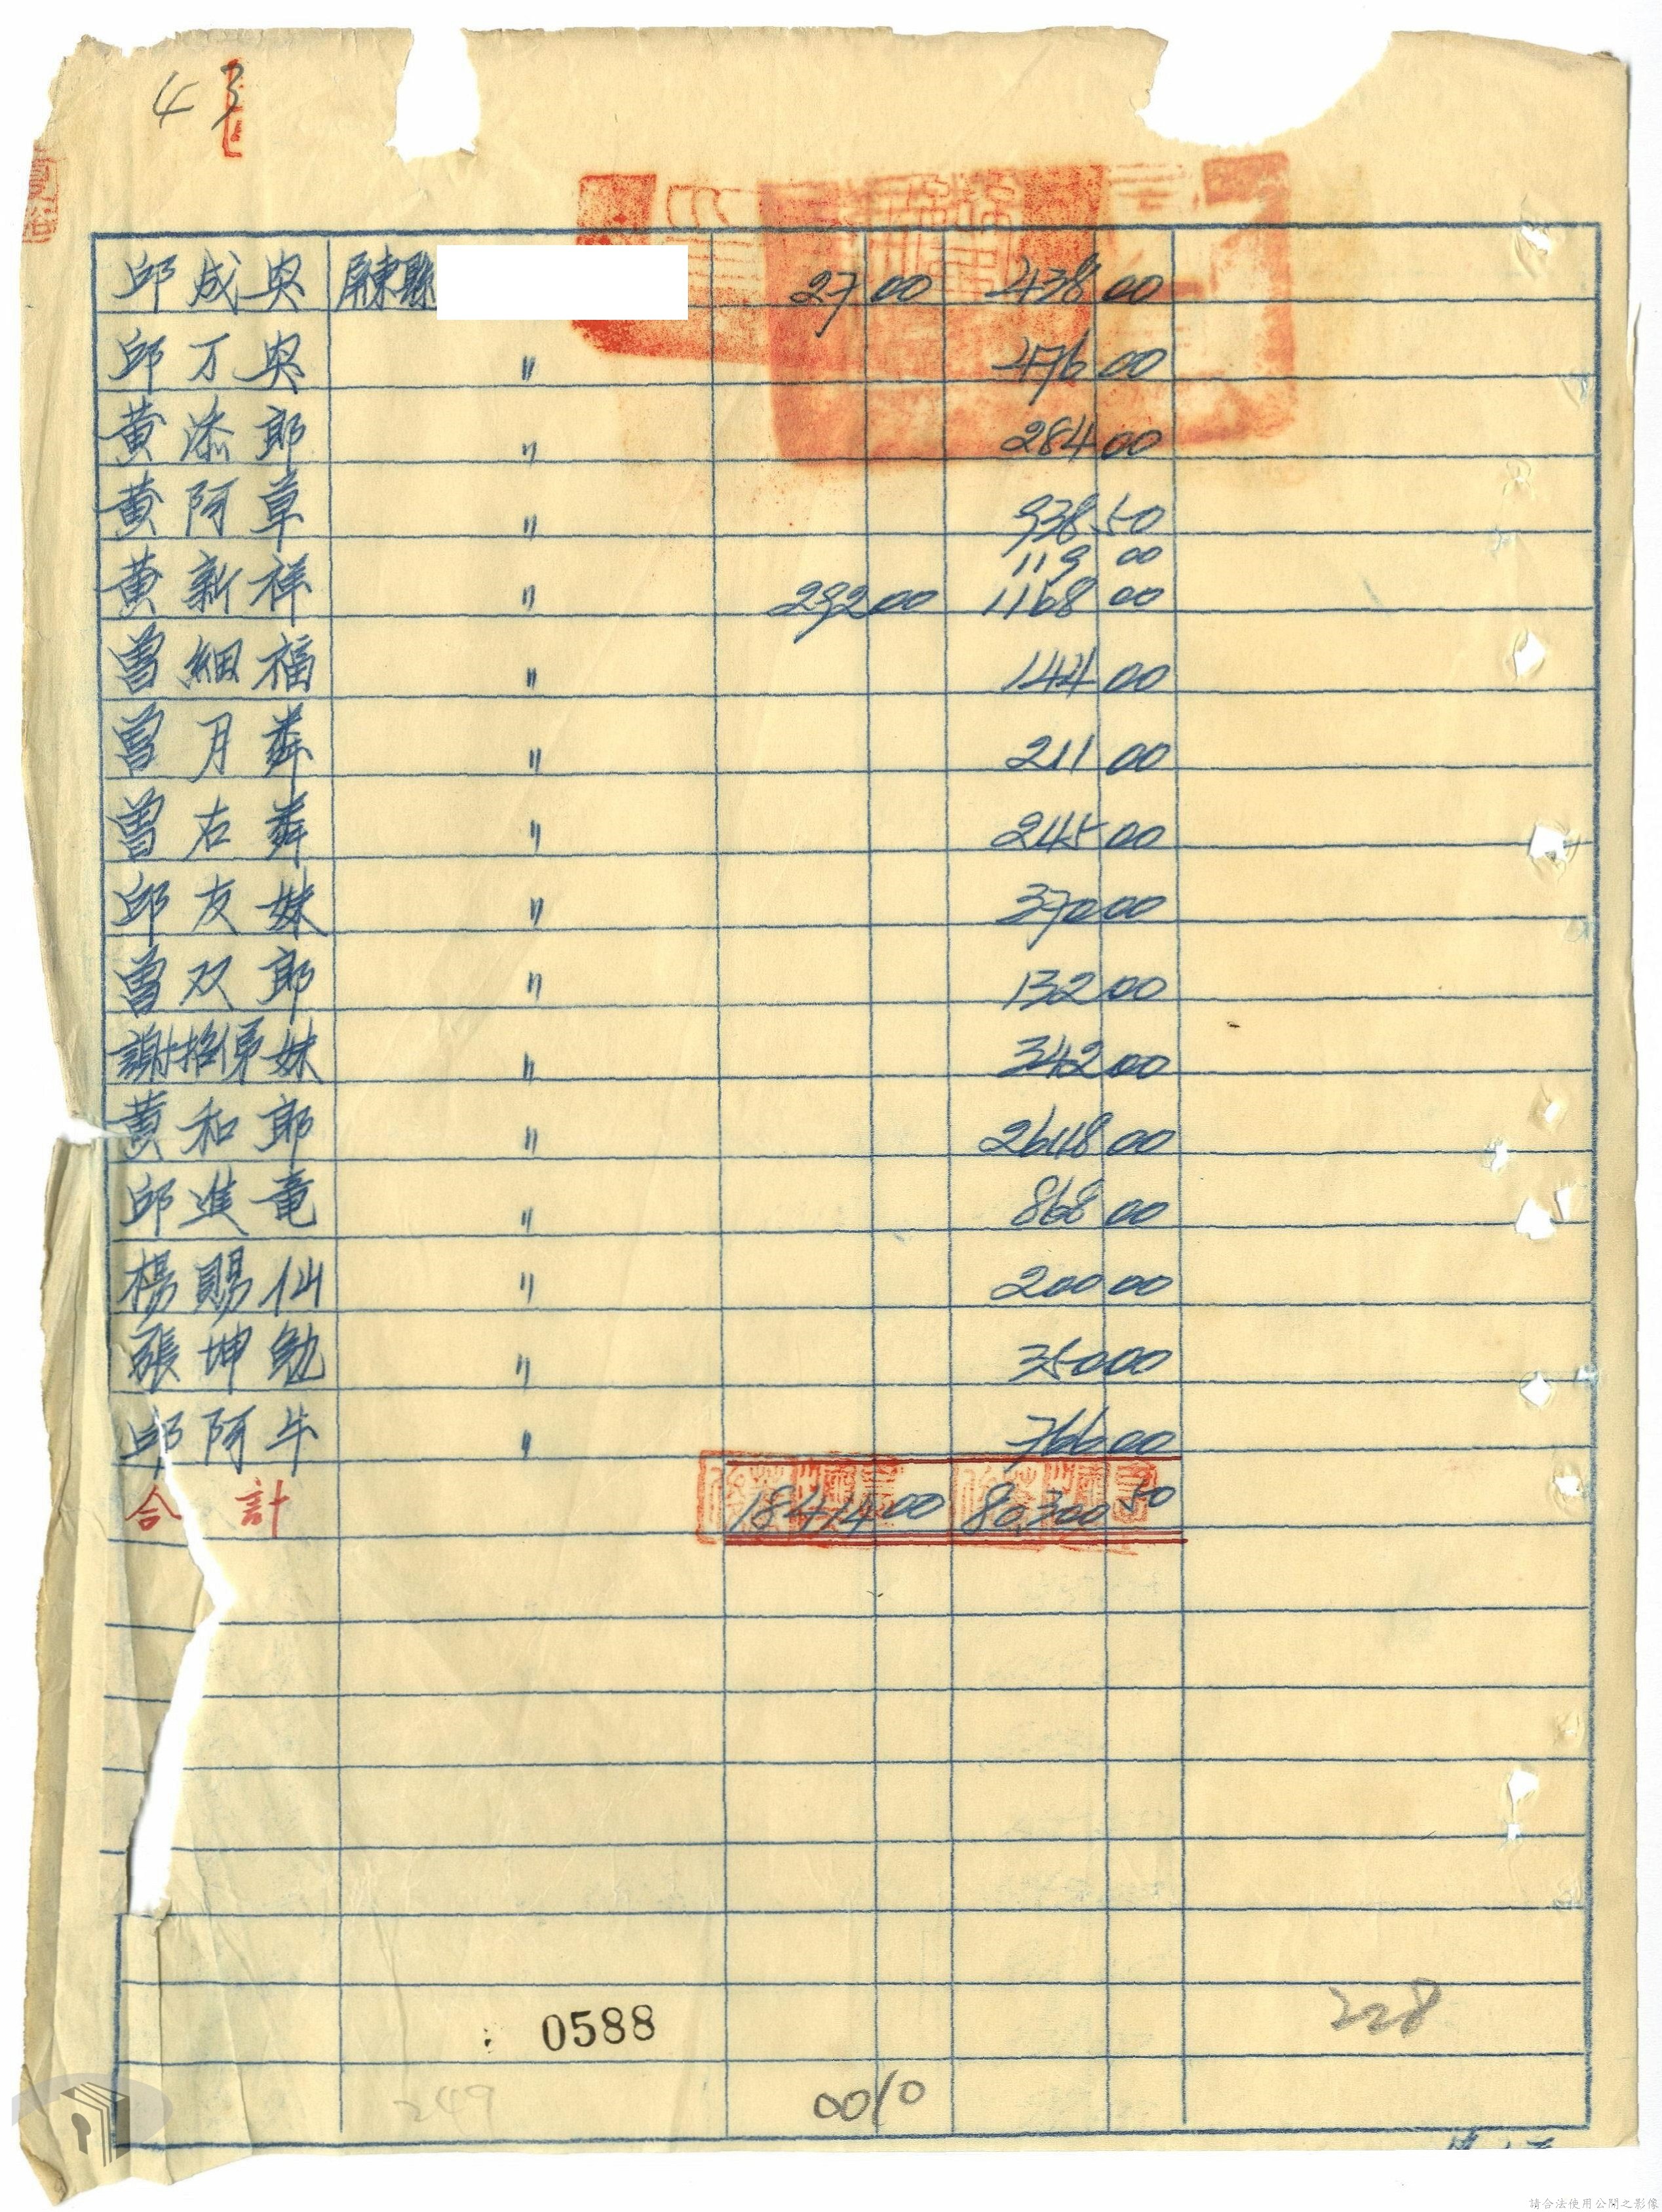 43
邱成奥 屏東縣 27 00 438 00
邱万奥 〃 476 00
黄添郎 〃 284 00
黄阿草 〃 938 50
119 00
黄新祥 〃 292 00 1168 00
曽細福 〃 144 00
曽月 〃 211 00
曽右 〃 245 00
邱友妹 〃 370 00
曽双郎 〃 132 00
謝招弟妹 〃 342 00
黄和郎 〃 2648 00
邱進竜 〃 868 00
楊賜仙 〃 200 00
張坤勉 〃 350 00
邱阿牛 〃 766 00
合計 18414 00 80300 50
228
0588
249
0010
請合法使用公開之影像